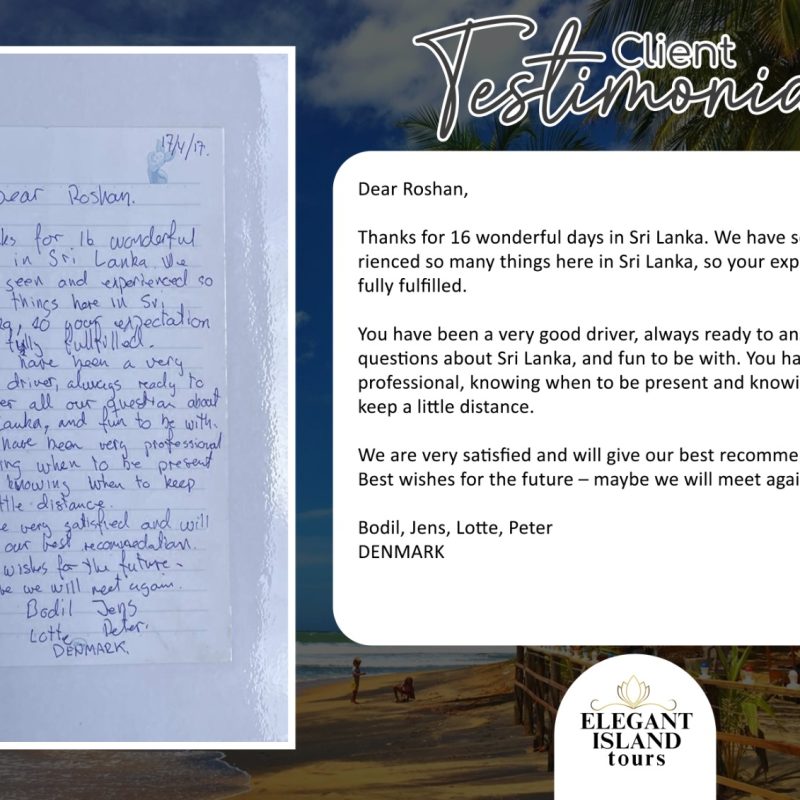 Client
Testimonia
17/4/17.
Dear Roshan.
ks for 16 wonderful
in Sri Lanka. We
seen and experienced so
things here in Sri
a, so your expectation
fully fulfilled.
have been a very
driver, always ready to
er all our question about
anka, and fun to be with.
have been very professional
ing when to be present
knowing when to keep
ttle distance.
e very satisfied and will
our best recommodation.
wishes for the future -
be we will meet again.
Bodil Jens
Lotte Peter.
DENMARK.
Dear Roshan,
Thanks for 16 wonderful days in Sri Lanka. We have s
rienced so many things here in Sri Lanka, so your exp
fully fulfilled.
You have been a very good driver, always ready to an
questions about Sri Lanka, and fun to be with. You ha
professional, knowing when to be present and knowi
keep a little distance.
We are very satisfied and will give our best recomme
Best wishes for the future – maybe we will meet agai
Bodil, Jens, Lotte, Peter
DENMARK
ELEGANT
ISLAND
tours